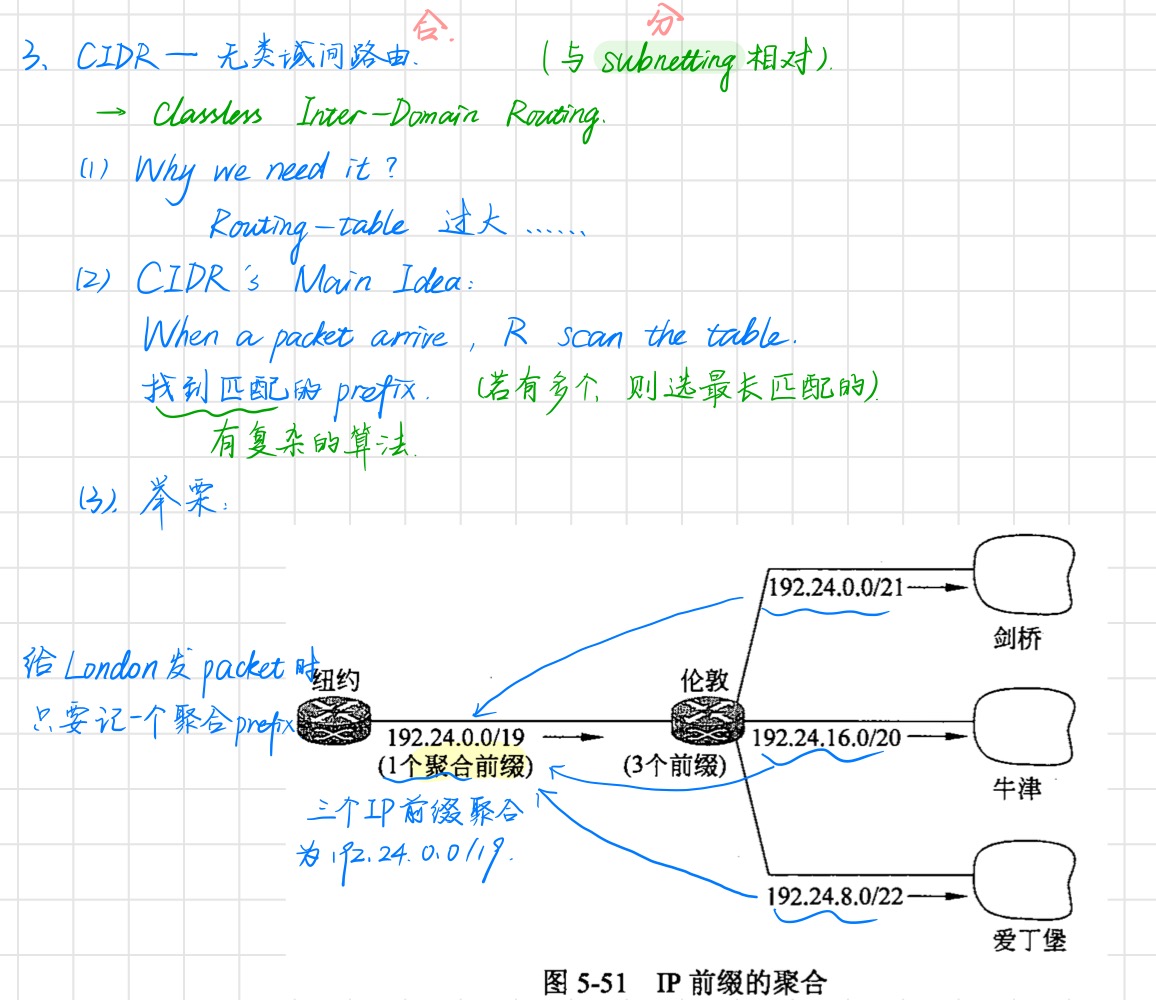 合. 分
3、CIDR — 无类域间路由. (与 subnetting 相对).
→ Classless Inter-Domain Routing.
(1) Why we need it?
Routing-table 过大 ......
(2) CIDR's Main Idea:
When a packet arrive, R scan the table.
找到匹配的 prefix. (若有多个, 则选最长匹配的)
有复杂的算法.
(3). 举栗:
192.24.0.0/21
剑桥
给London发packet时
只要记一个聚合prefix
纽约
伦敦
192.24.0.0/19
(1个聚合前缀)
(3个前缀)
192.24.16.0/20
牛津
三个IP前缀聚合
为192.24.0.0/19.
192.24.8.0/22
爱丁堡
图 5-51 IP 前缀的聚合